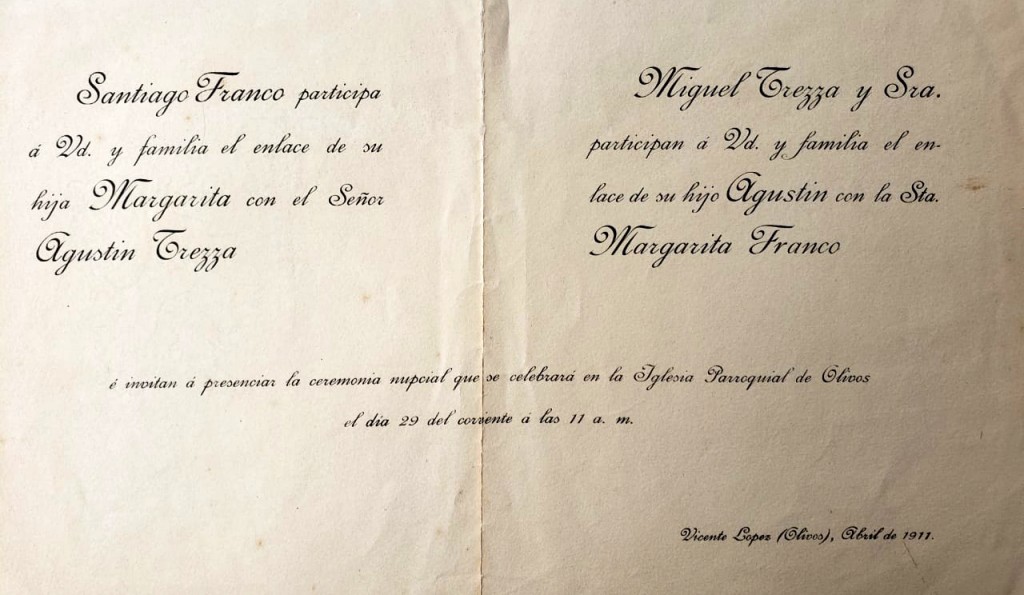 Santiago Franco participa
á Vd. y familia el enlace de su
hija Margarita con el Señor
Agustin Trezza
Miguel Trezza y Sra.
participan á Vd. y familia el en-
lace de su hijo Agustin con la Sta.
Margarita Franco
é invitan á presenciar la ceremonia nupcial que se celebrará en la Iglesia Parroquial de Olivos
el dia 29 del corriente á las 11 a. m.
Vicente Lopez (Olivos), Abril de 1911.